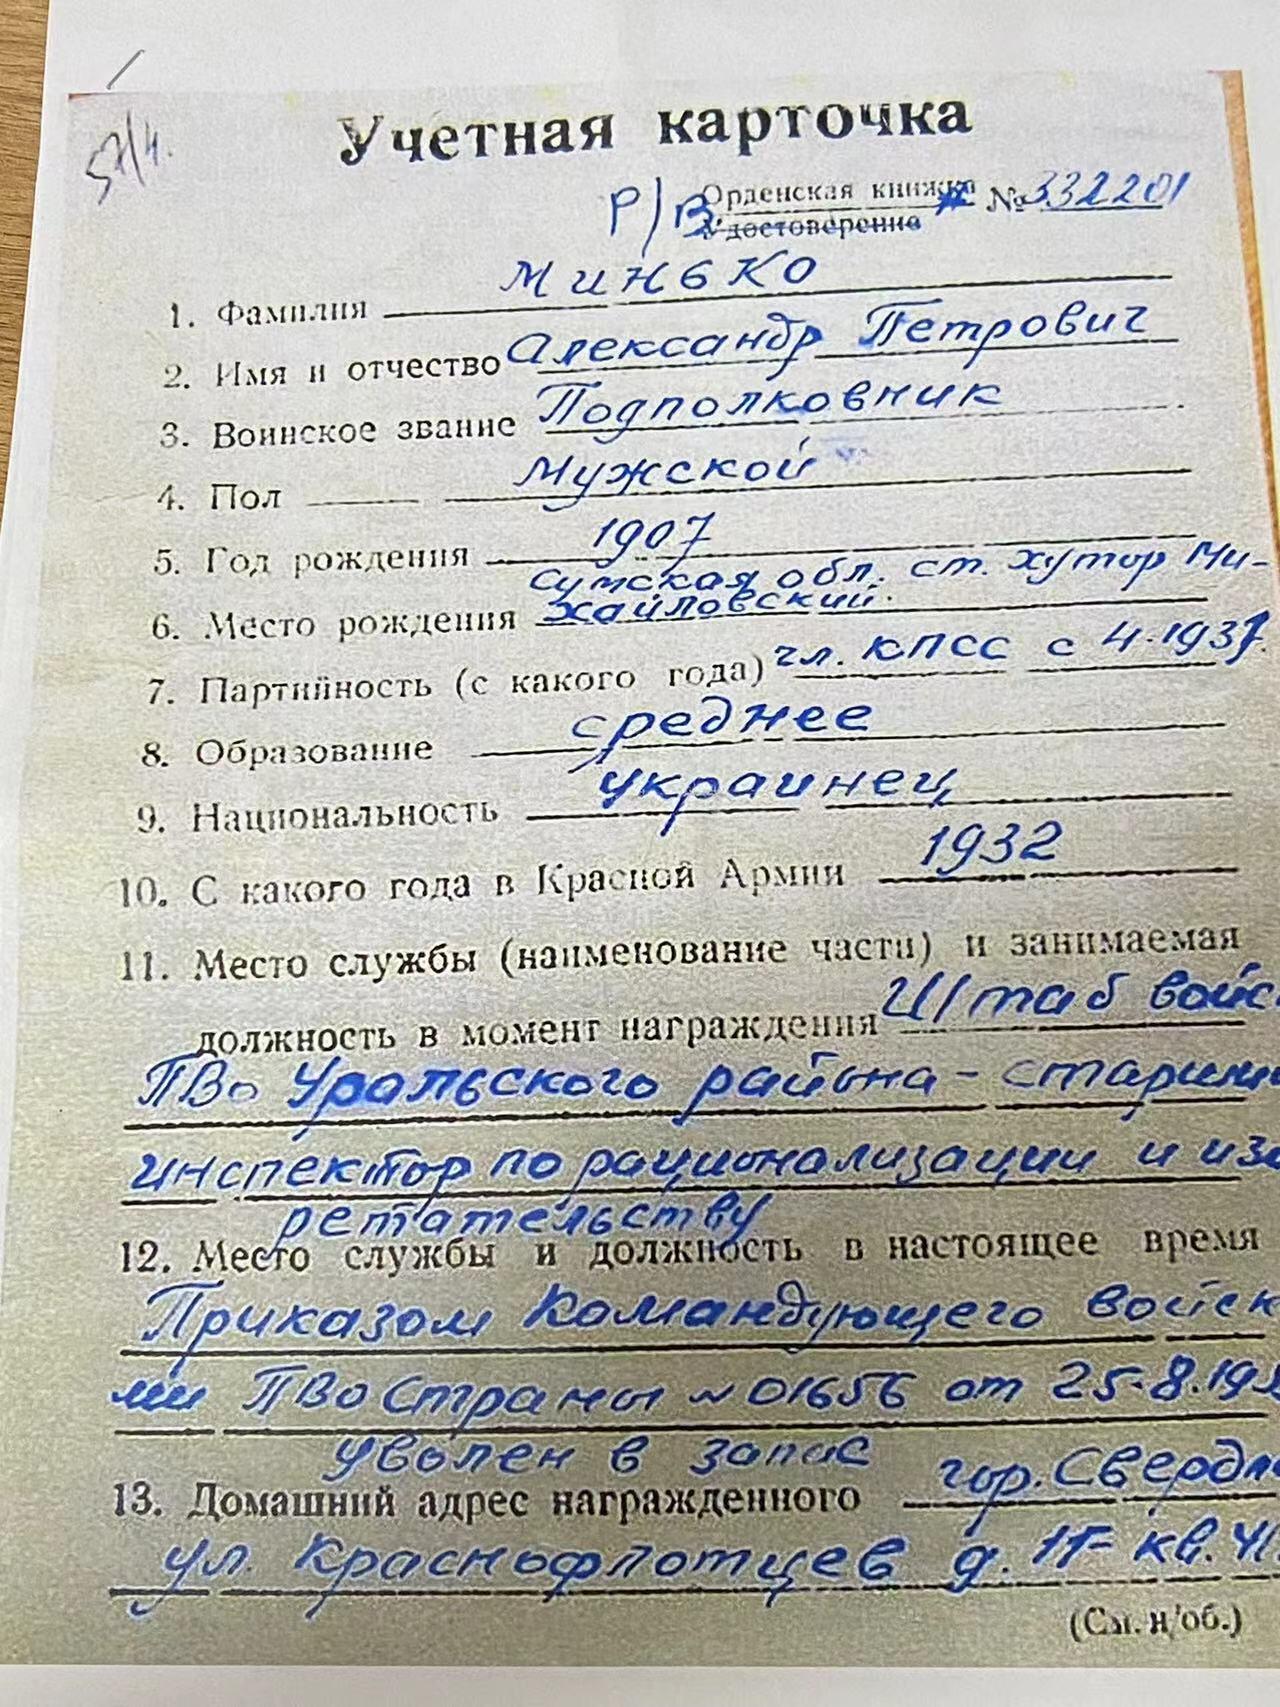 57/4.
Учетная карточка
Р/В Орденская книжка № 332201
Удостоверение
1. Фамилия Минько
2. Имя и отчество Александр Петрович
3. Воинское звание Подполковник
4. Пол Мужской
5. Год рождения 1907
Сумская обл. ст. хутор Ми-
6. Место рождения хайловский.
7. Партийность (с какого года) чл. КПСС с 4.1937.
8. Образование среднее
9. Национальность украинец
10. С какого года в Красной Армии 1932
11. Место службы (наименование части) и занимаемая
должность в момент награждения Штаб войс
ПВО Уральского района - старши
инспектор по рационализации и изо
ретательству
12. Место службы и должность в настоящее время
Приказом Командующего войск
ми ПВО Страны № 01656 от 25.8.195
уволен в запас
13. Домашний адрес награжденного гор. Свердл
ул. Краснофлотцев д. 11 кв. 41.
(См. н/об.)